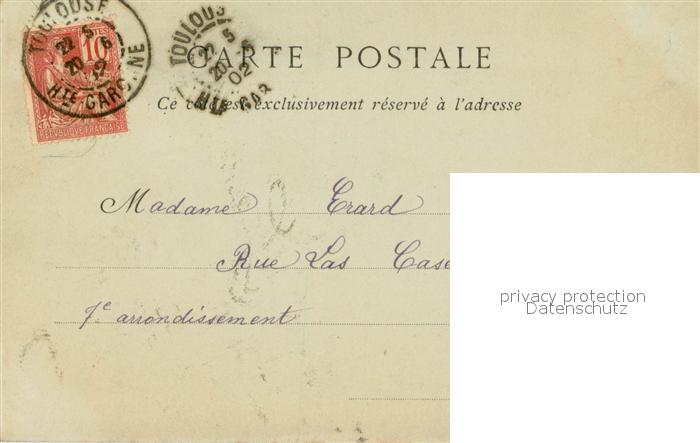 TOULOUSE
22 5
20 6
02
HTE GARONNE
10
REPUBLIQUE FRANÇAISE
TOULOUS
22 5
20 6
02
HTE GAR
CARTE POSTALE
Ce côté est exclusivement réservé à l'adresse
Madame Erard
Rue Las Case
7e arrondissement
privacy protection
Datenschutz